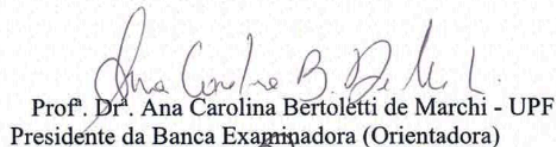 Ana Caroline B. De Marchi
Profª. Drª. Ana Carolina Bertoletti de Marchi - UPF
Presidente da Banca Examinadora (Orientadora)